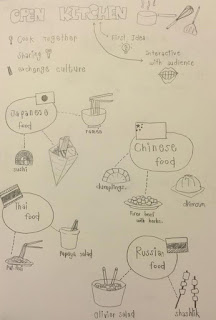 OPEN KITCHEN
Cook together
sharing
exchange culture
First Idea
Interactive
with audience
Japanese
food
ramen
sushi
Chinese
food
dumplings
dimsum
Thai
food
Papaya salad
pad thai
Russian
food
Olivier salad
shashlik